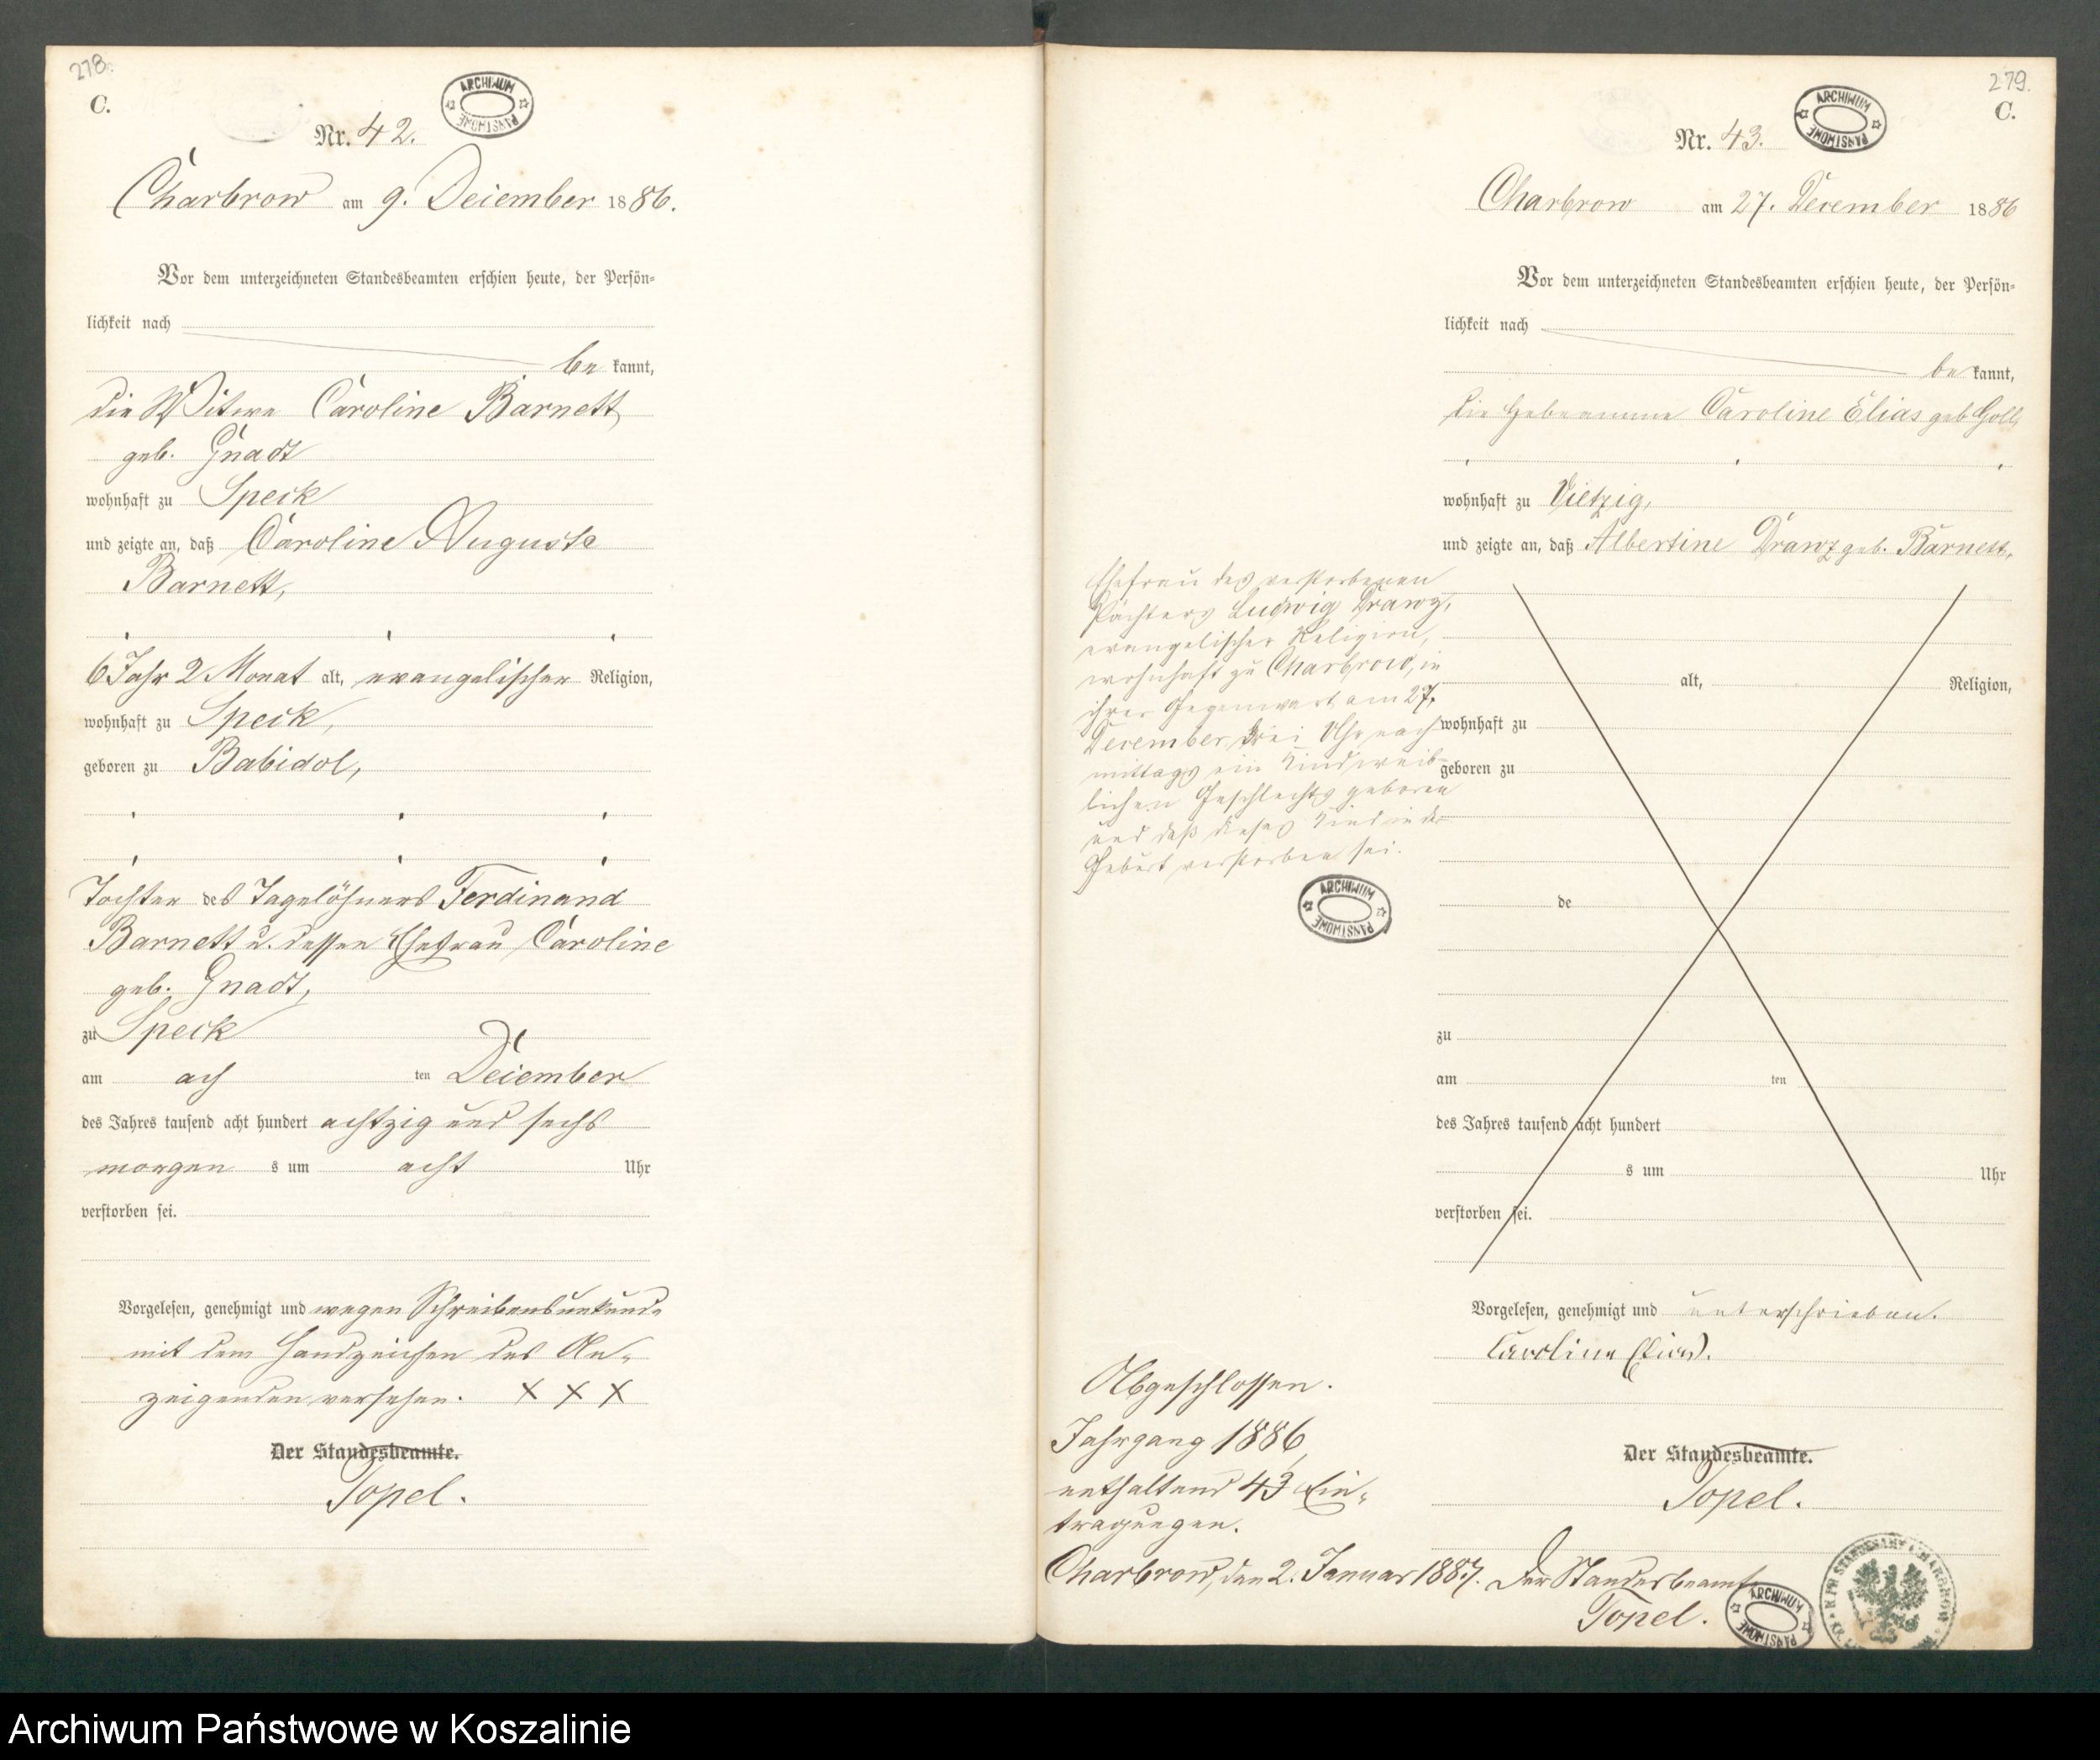 278.
C.
ARCHIWUM PAŃSTWOWE
Nr. 42.
Charbrow am 9. December 1886.
Vor dem unterzeichneten Standesbeamten erschien heute, der Persön-
lichkeit nach
be kannt,
die Witwe Caroline Barnett
geb. Gnadt
wohnhaft zu Speck
und zeigte an, daß Caroline Auguste
Barnett,
6 Jahr 2 Monat alt, evangelischer Religion,
wohnhaft zu Speck,
geboren zu Babidol,
Tochter des Tagelöhners Ferdinand
Barnett u. dessen Ehefrau Caroline
geb. Gnadt,
zu Speck
am ach ten December
des Jahres tausend acht hundert achtzig und sechs
morgen s um acht Uhr
verstorben sei.
Vorgelesen, genehmigt und wegen Schreibensunkunde
mit dem Handzeichen des An-
zeigenden versehen. X X X
Der Standesbeamte.
Topel.
279.
C.
ARCHIWUM PAŃSTWOWE
Nr. 43.
Charbrow am 27. December 1886
Vor dem unterzeichneten Standesbeamten erschien heute, der Persön-
lichkeit nach
be kannt,
die Hebeamme Caroline Elias geb. Goll,
wohnhaft zu Vietzig,
und zeigte an, daß Albertine Drawz geb. Barnett,
Ehefrau des verstorbenen
Pächters Ludwig Drawz,
evangelischer Religion,
wohnhaft zu Charbrow, in
ihrer Gegenwart am 27.
December drei Uhr nach
mittags ein Kind weib-
lichen Geschlechts geboren
und daß dieses Kind in der
Geburt verstorben sei.
ARCHIWUM PAŃSTWOWE
alt, Religion,
wohnhaft zu
geboren zu
de
zu
am ten
des Jahres tausend acht hundert
s um Uhr
verstorben sei.
Vorgelesen, genehmigt und unterschrieben.
Caroline Elias.
Der Standesbeamte.
Topel.
Abgeschlossen.
Jahrgang 1886,
enthaltend 43 Ein-
tragungen.
Charbrow, den 2. Januar 1887. Der Standesbeamte
Topel.
ARCHIWUM PAŃSTWOWE
STANDESAMT CHARBROW
Archiwum Państwowe w Koszalinie